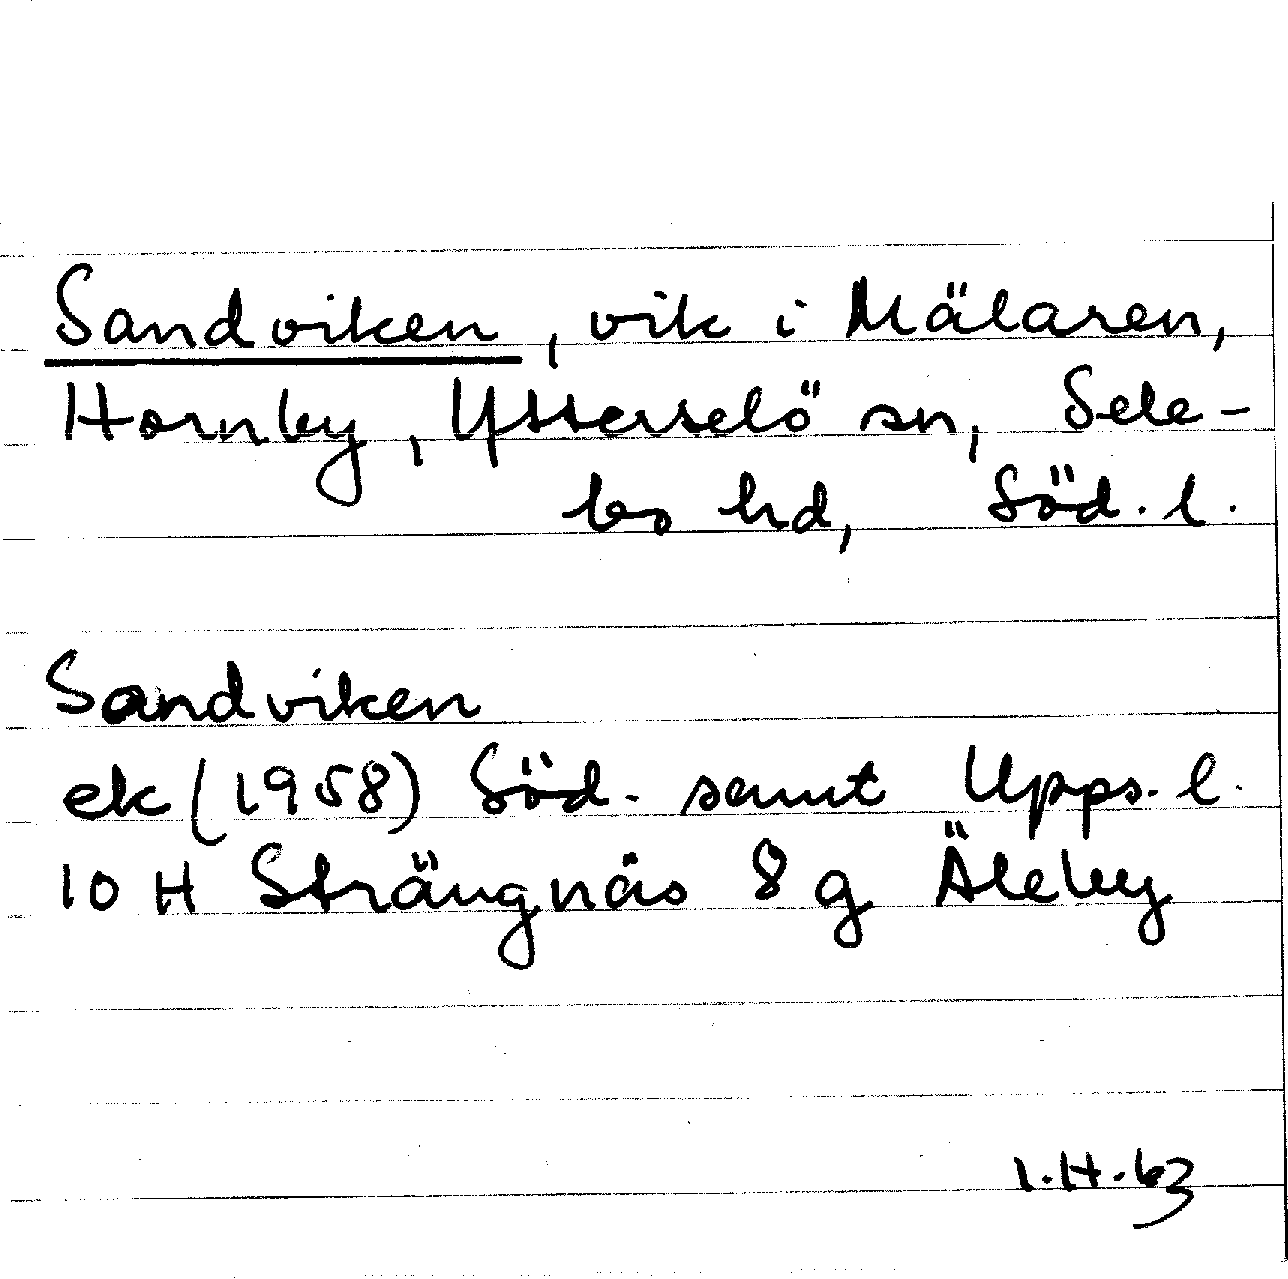 Sandviken, vik i Mälaren,
Hornby, Ytterselö sn, Sele-
bo hd, Söd. l.
Sandviken
ek (1958) Söd. samt Upps. l.
10 H Strängnäs 8 g Åleby
1.H.63